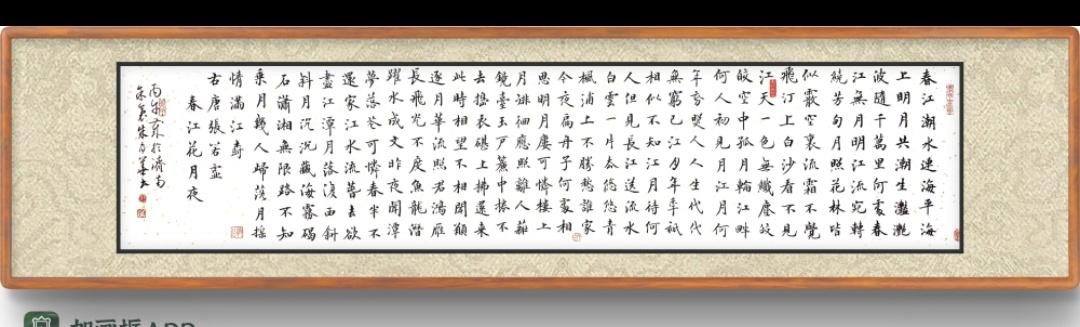 春江潮水連海平海
上明月共潮生灩灩
波隨千萬里何處春
江無月明江流宛轉
繞芳甸月照花林皆
似霰空裏流霜不覺
飛汀上白沙看不見
江天一色無纖塵皎
皎空中孤月輪江畔
何人初見月江月何
年照人人生代代
無窮已江月年年祇
相似不知江月待何
人但見長江送流水
白雲一片去悠悠青
楓浦上不勝愁誰家
今夜扁舟子何處相
思明月樓可憐樓上
月徘徊應照離人妝
鏡臺玉戶簾中捲不
去擣衣碪上拂還來
此時相望不相聞願
逐月華流照君鴻雁
長飛光不度魚龍潛
躍水成文昨夜閒潭
夢落花可憐春半不
還家江水流春去欲
盡江潭月落復西斜
斜月沉沉藏海霧碣
石瀟湘無限路不知
乘月幾人歸落月搖
情滿江
古唐張若虛
春江花月夜
丙午於濟南
加画框APP